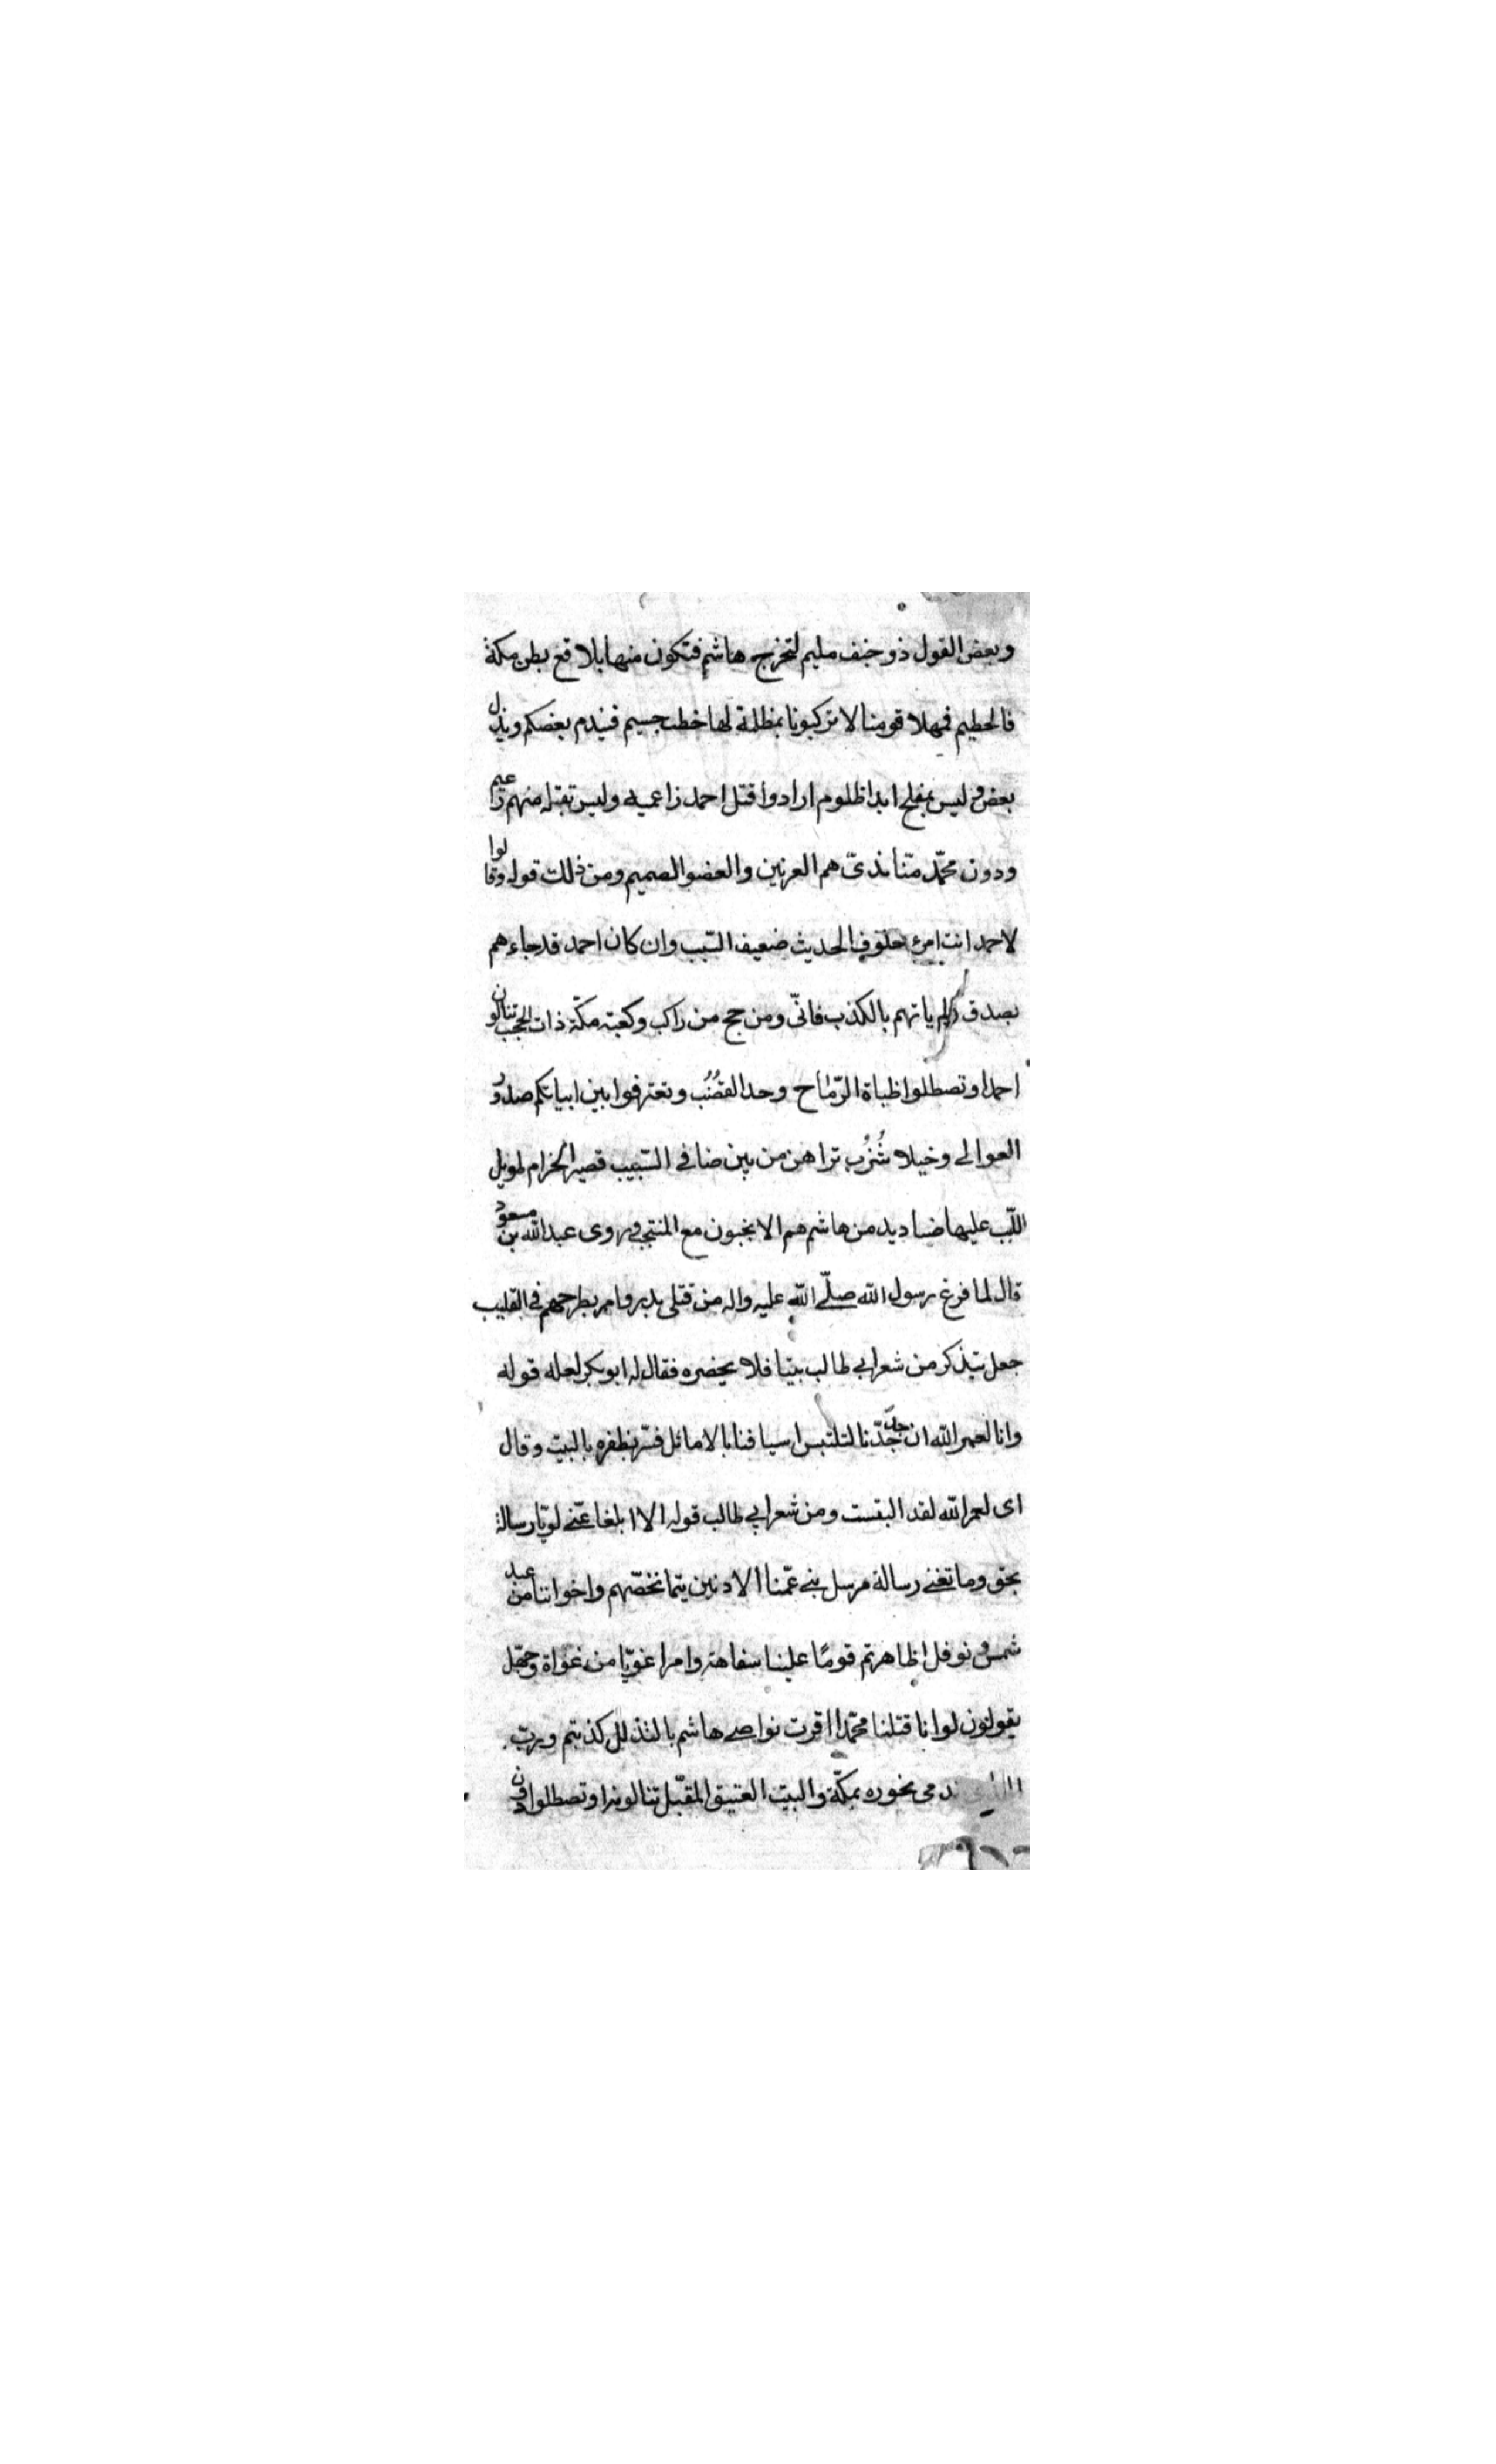 وبعض القول ذو جنف مليم لتخرج هاشم فتكون منها بلاقع بطن مكة
فالحطيم فمهلا قومنا لا تركبونا بمظلمة لها خطب جسيم فيندم بعضكم ويذل
بعض وليس بمفلح ابدا ظلوم ارادوا قتل احمد زاعميه وليس بقتله منهم زاعيم
ودون محمّد منّا نديّ هم العرنين والعضو الصميم ومن ذلك قوله وقالوا
لاحمد انت امرؤ خلوف الحديث ضعيف السّبب وان كان احمد قد جاءهم
بصدق ولم ياتهم بالكذب فانّي ومن حج من راكب وكعبة مكّة ذات الحجب تنالون
احمدا وتصطلوا ظباة الرّماح وحد القضُب وتعترفوا بين ابياتكم صدور
العوالي وخيلا شُزُب تراهن من بين ضافي السّبيب قصير الحزام طويل
اللّبب عليها صناديد من هاشم هم الانجبون مع المنتجب وروى عبد الله بن مسعود
قال لما فرغ رسول الله صلّى الله عليه واله من قتلى بدر وامر بطرحهم في القليب
جعل يتذكر من شعر ابي طالب بيتا فلا يحضره فقال له ابو بكر لعله قوله
وانا لعمر الله ان جدّ جدّنا لتلتبس اسيافنا بالاماثل فسرّ بظفره بالبيت وقال
اى لعمر الله لقد التبست ومن شعر ابي طالب قوله الا ابلغا عنّي لويّا رسالة
بحق وما تغني رسالة مرسل بني عمّنا الادنين يتما نخصّهم واخواننا من عبد
شمس ونوفل اظاهرتم قومًا علينا سفاهة وامرا غويّا من غواة وجهّل
يقولون لو انا قتلنا محمّدا اقرت نواصي هاشم بالتذلل كذبتم وربّ
تدمى نحوره بمكّة والبيت العتيق المقبّل تنالونه او تصطلوا دون